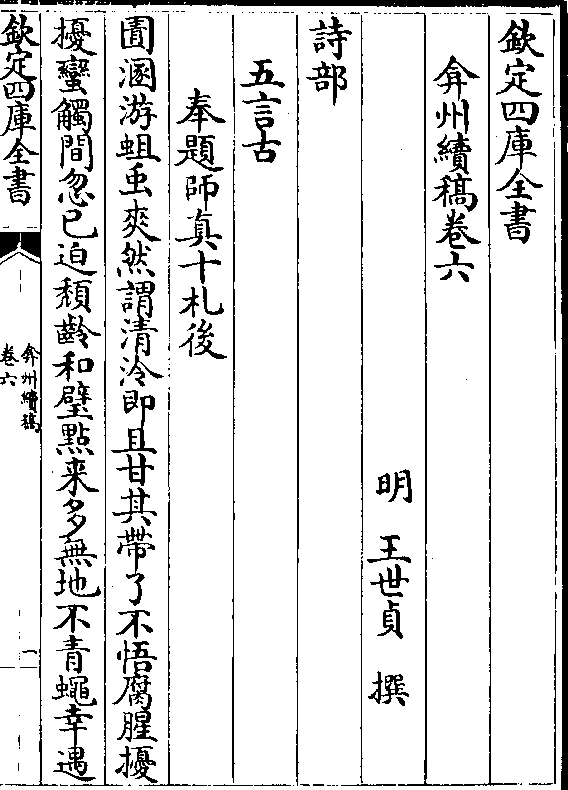 欽定四庫全書
弇州續稿卷六
明　王世貞　撰
詩部
五言古
奉題師真十札後
圊溷游蛆䖝爽然謂清泠即且甘其帶了不悟腐腥擾
擾蠻觸間忽已迫頹齡和璧點来多無地不青蠅幸遇
欽定四庫全書
弇州續稿
卷六
一